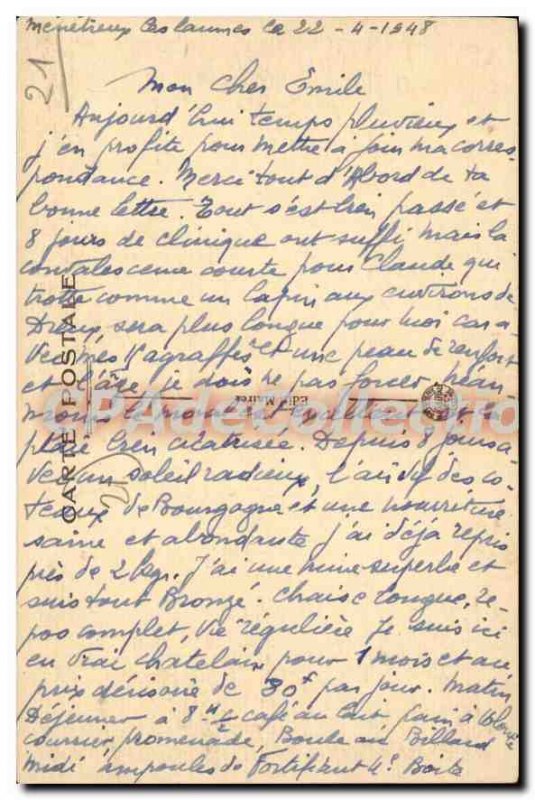 Ménétreux les laumes le 22 - 4 - 1948
21
Mon cher Emile
Aujourd'hui temps pluvieux et
j'en profite pour mettre à jour ma corres
pondance. Merci tout d'Abord de ta
bonne lettre. Tout s'est bien passé et
8 jours de clinique ont suffi. mais la
convalescence courte pour Claude qui
trotte comme un lapin aux environs de
Dreux, sera plus longue pour moi car a-
vec mes agraffes et une peau de renfort
et l'âge, je dois ne pas forcer. Néan
moins le moral est excellent et la
plaie bien cicatrisée. Depuis 8 jours a-
vec un soleil radieux, l'air vif des co-
teaux de Bourgogne et une nourriture
saine et abondante j'ai déjà repris
près de 2 kgs. J'ai une mine superbe et
suis tout Bronzé. Chaise longue, re-
pos complet, vie régulière je suis ici
en vrai chatelain pour 1 mois et au
prix dérisoire de 30f par jour. Matin
Déjeuner à 8 h ½ café au lait pain à
courrier, promenade, Boule au Billard
Midi ampoules de Fortifiant 4s Boite
CARTE POSTALE
21
Edit. Mairet
CPADeCollection